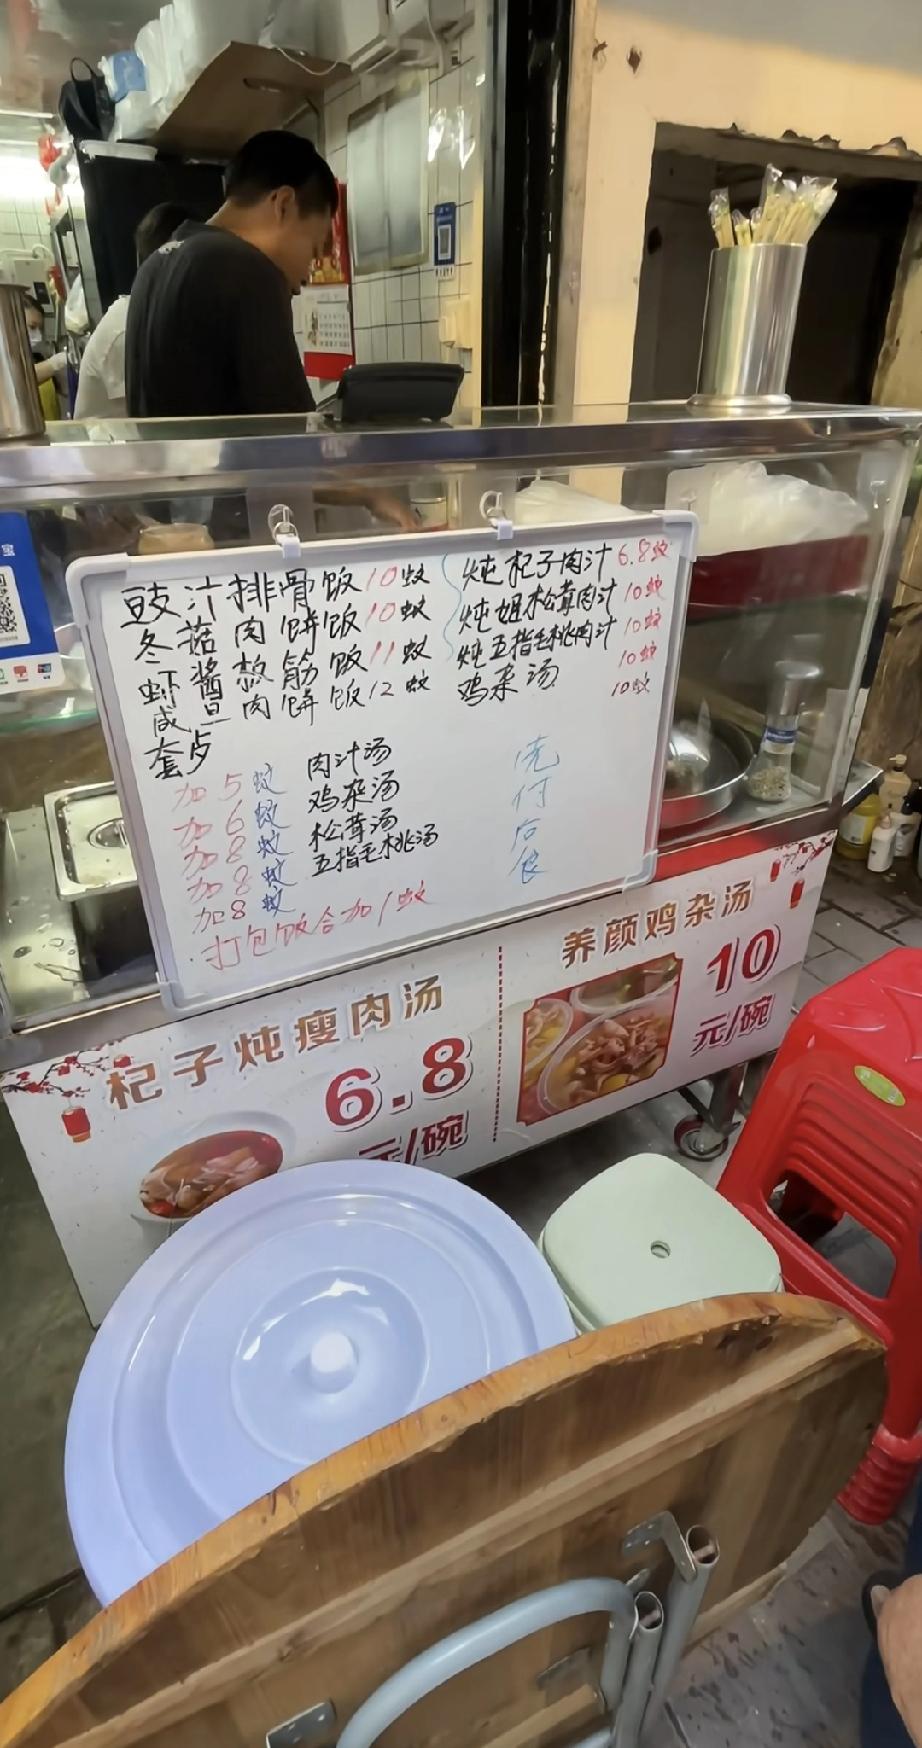 豉汁排骨饭10蚊
冬菇肉饼饭10蚊
虾酱 筋饭11蚊
咸旦肉饼饭12蚊
套歺
加5蚊 肉汁汤
加6蚊 鸡杂汤
加8蚊 松茸汤
加8蚊 五指毛桃汤
加8蚊
打包饭合加1蚊
炖杞子肉汁 6.8蚊
炖姬松茸肉汁 10蚊
炖五指毛桃肉汁 10蚊
鸡杂汤 10蚊
10蚊
先
付
后
食
杞子炖瘦肉汤
6.8
元/碗
养颜鸡杂汤
10
元/碗